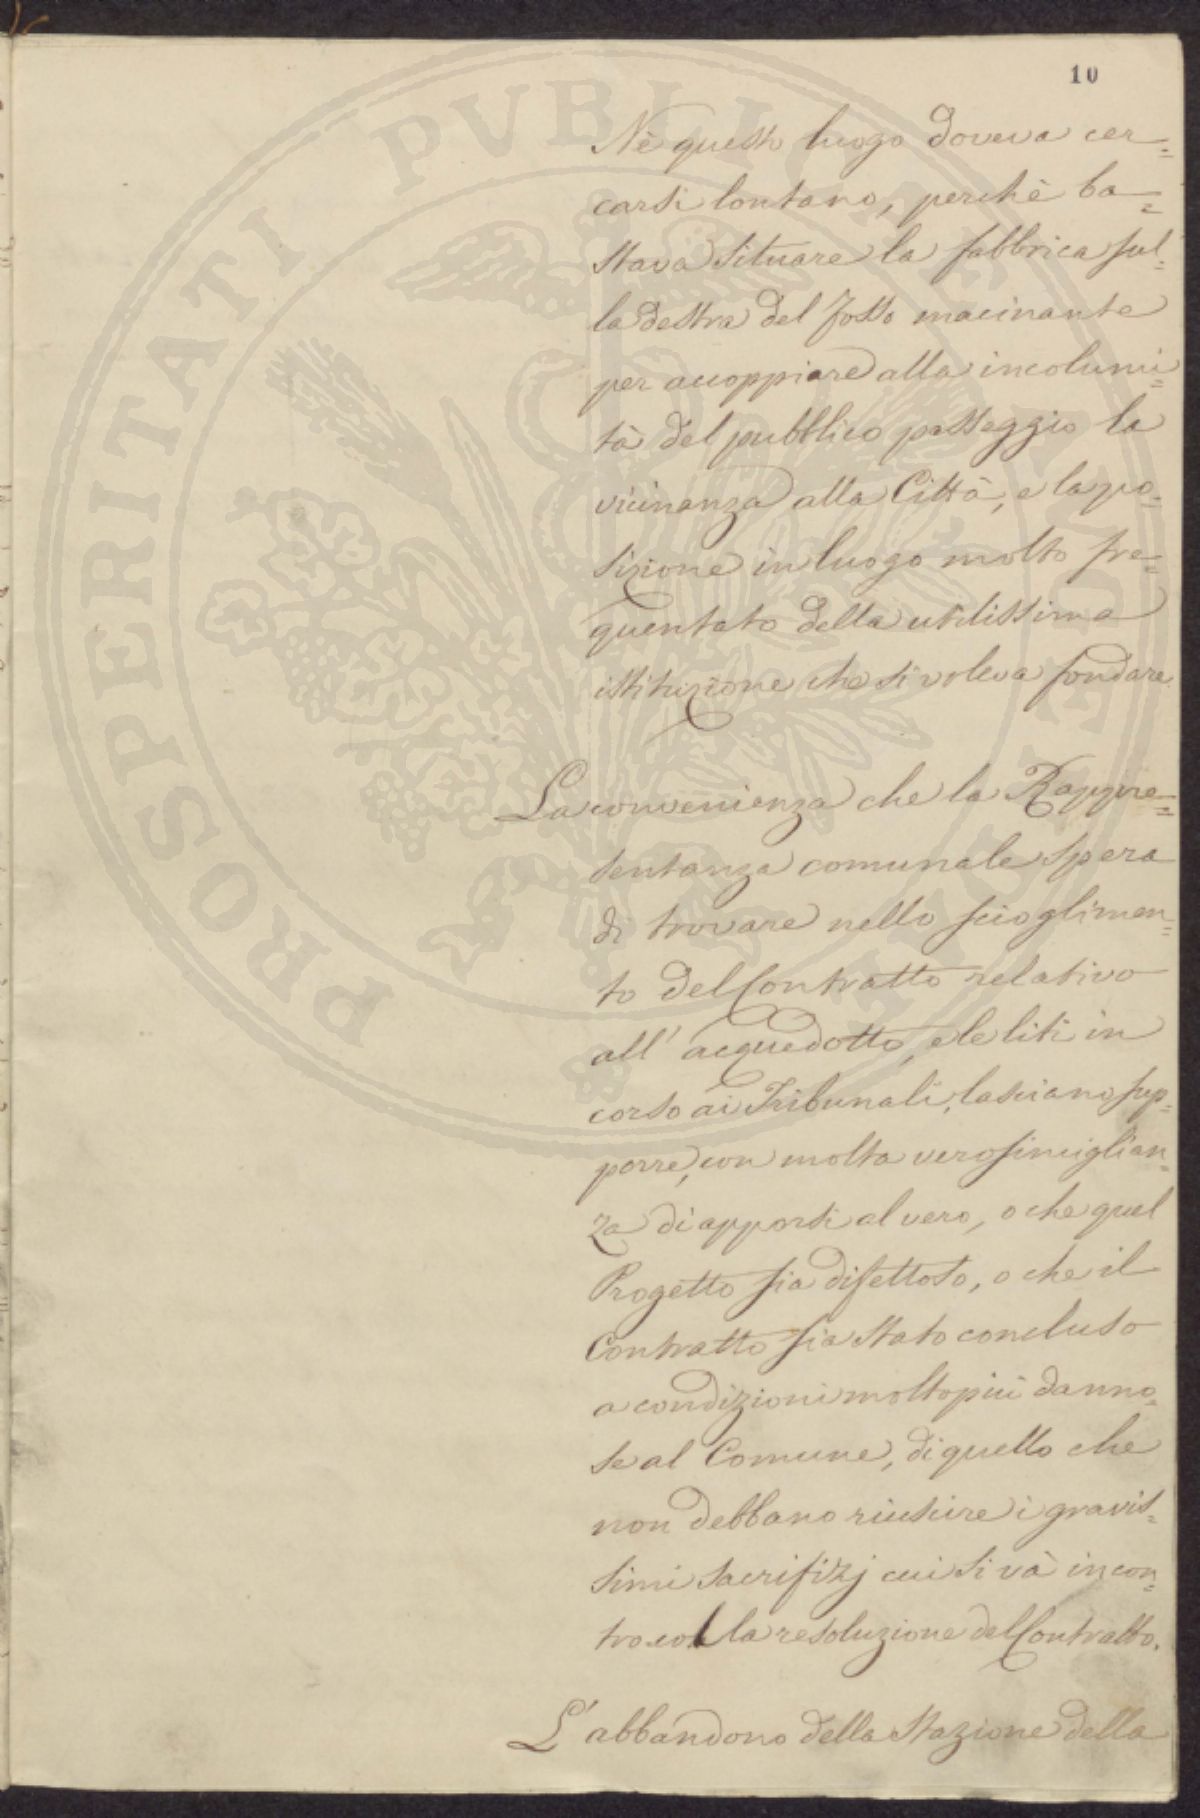 10
Nè questo luogo doveva cer=
carsi lontano, perchè ba=
stava situare la fabbrica sul=
la destra del Fosso macinante
per accoppiare alla incolumi=
tà del pubblico passeggio la
vicinanza alla Città, e la po=
sizione in luogo molto fre=
quentato della utilissima
istituzione che si voleva fondare.
La convenienza che la Rappre=
sentanza comunale spera
di trovare nello scioglimen=
to del Contratto relativo
all' acquedotto, e le liti in
corso ai Tribunali, lasciano sup=
porre, con molta verosimiglian=
za di apporsi al vero, o che quel
Progetto sia difettoso, o che il
Contratto sia stato concluso
a condizioni molto più danno=
se al Comune, di quello che
non debbano riuscire i gravis=
simi sacrifizj cui si và incon=
tro colla resoluzione del Contratto.
L' abbandono della Stazione della
PROSPERITATI PVBLICAE